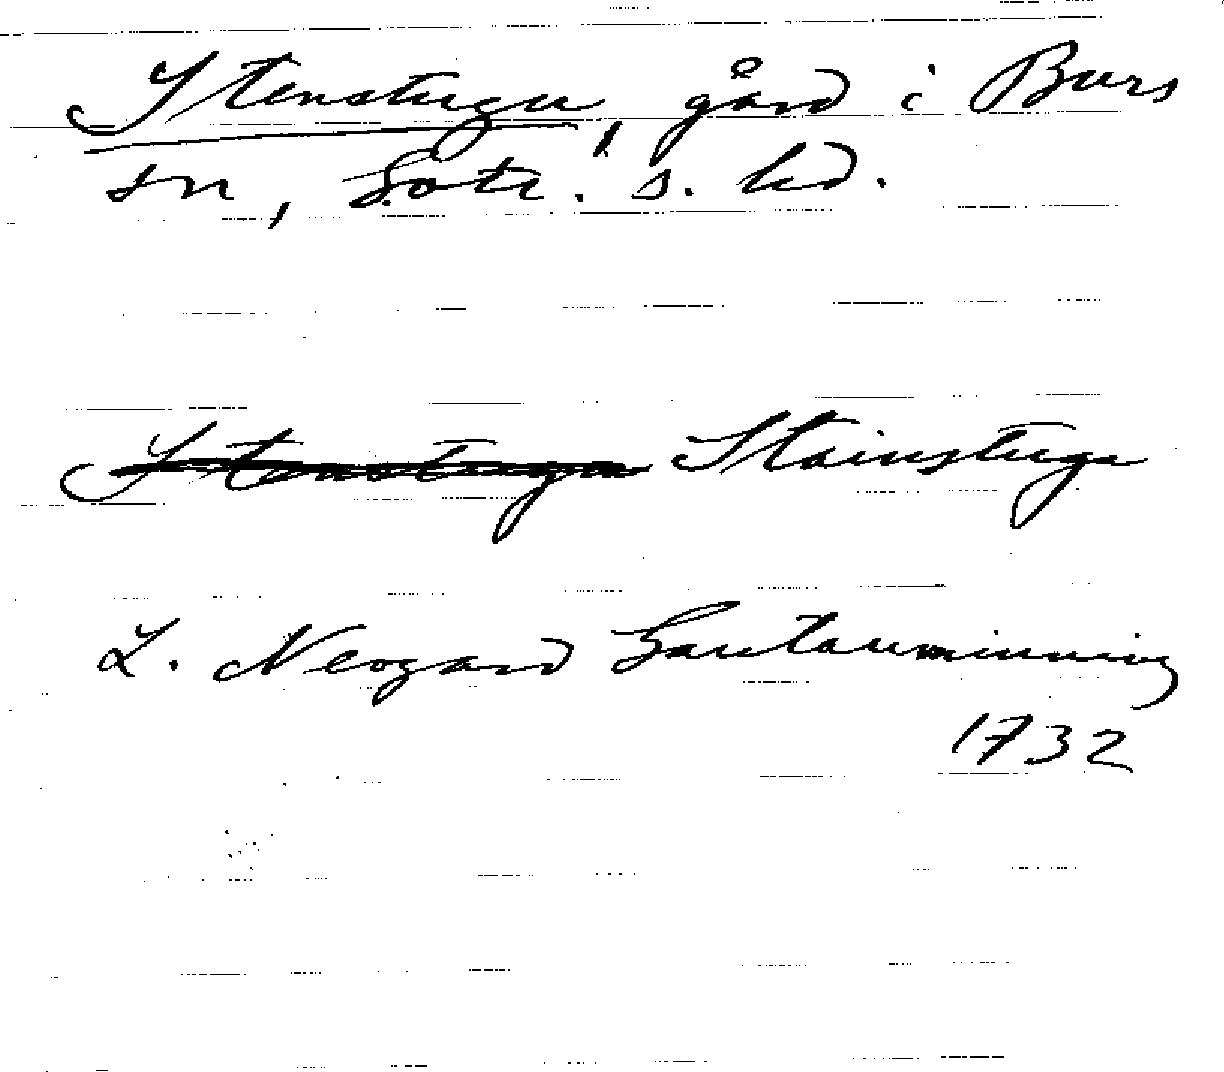 Stenstugu, gård i Burs
sn, Gotl. s. hd.
Stenstugu Stainstuge
L. Neogard Gautauminning
1732